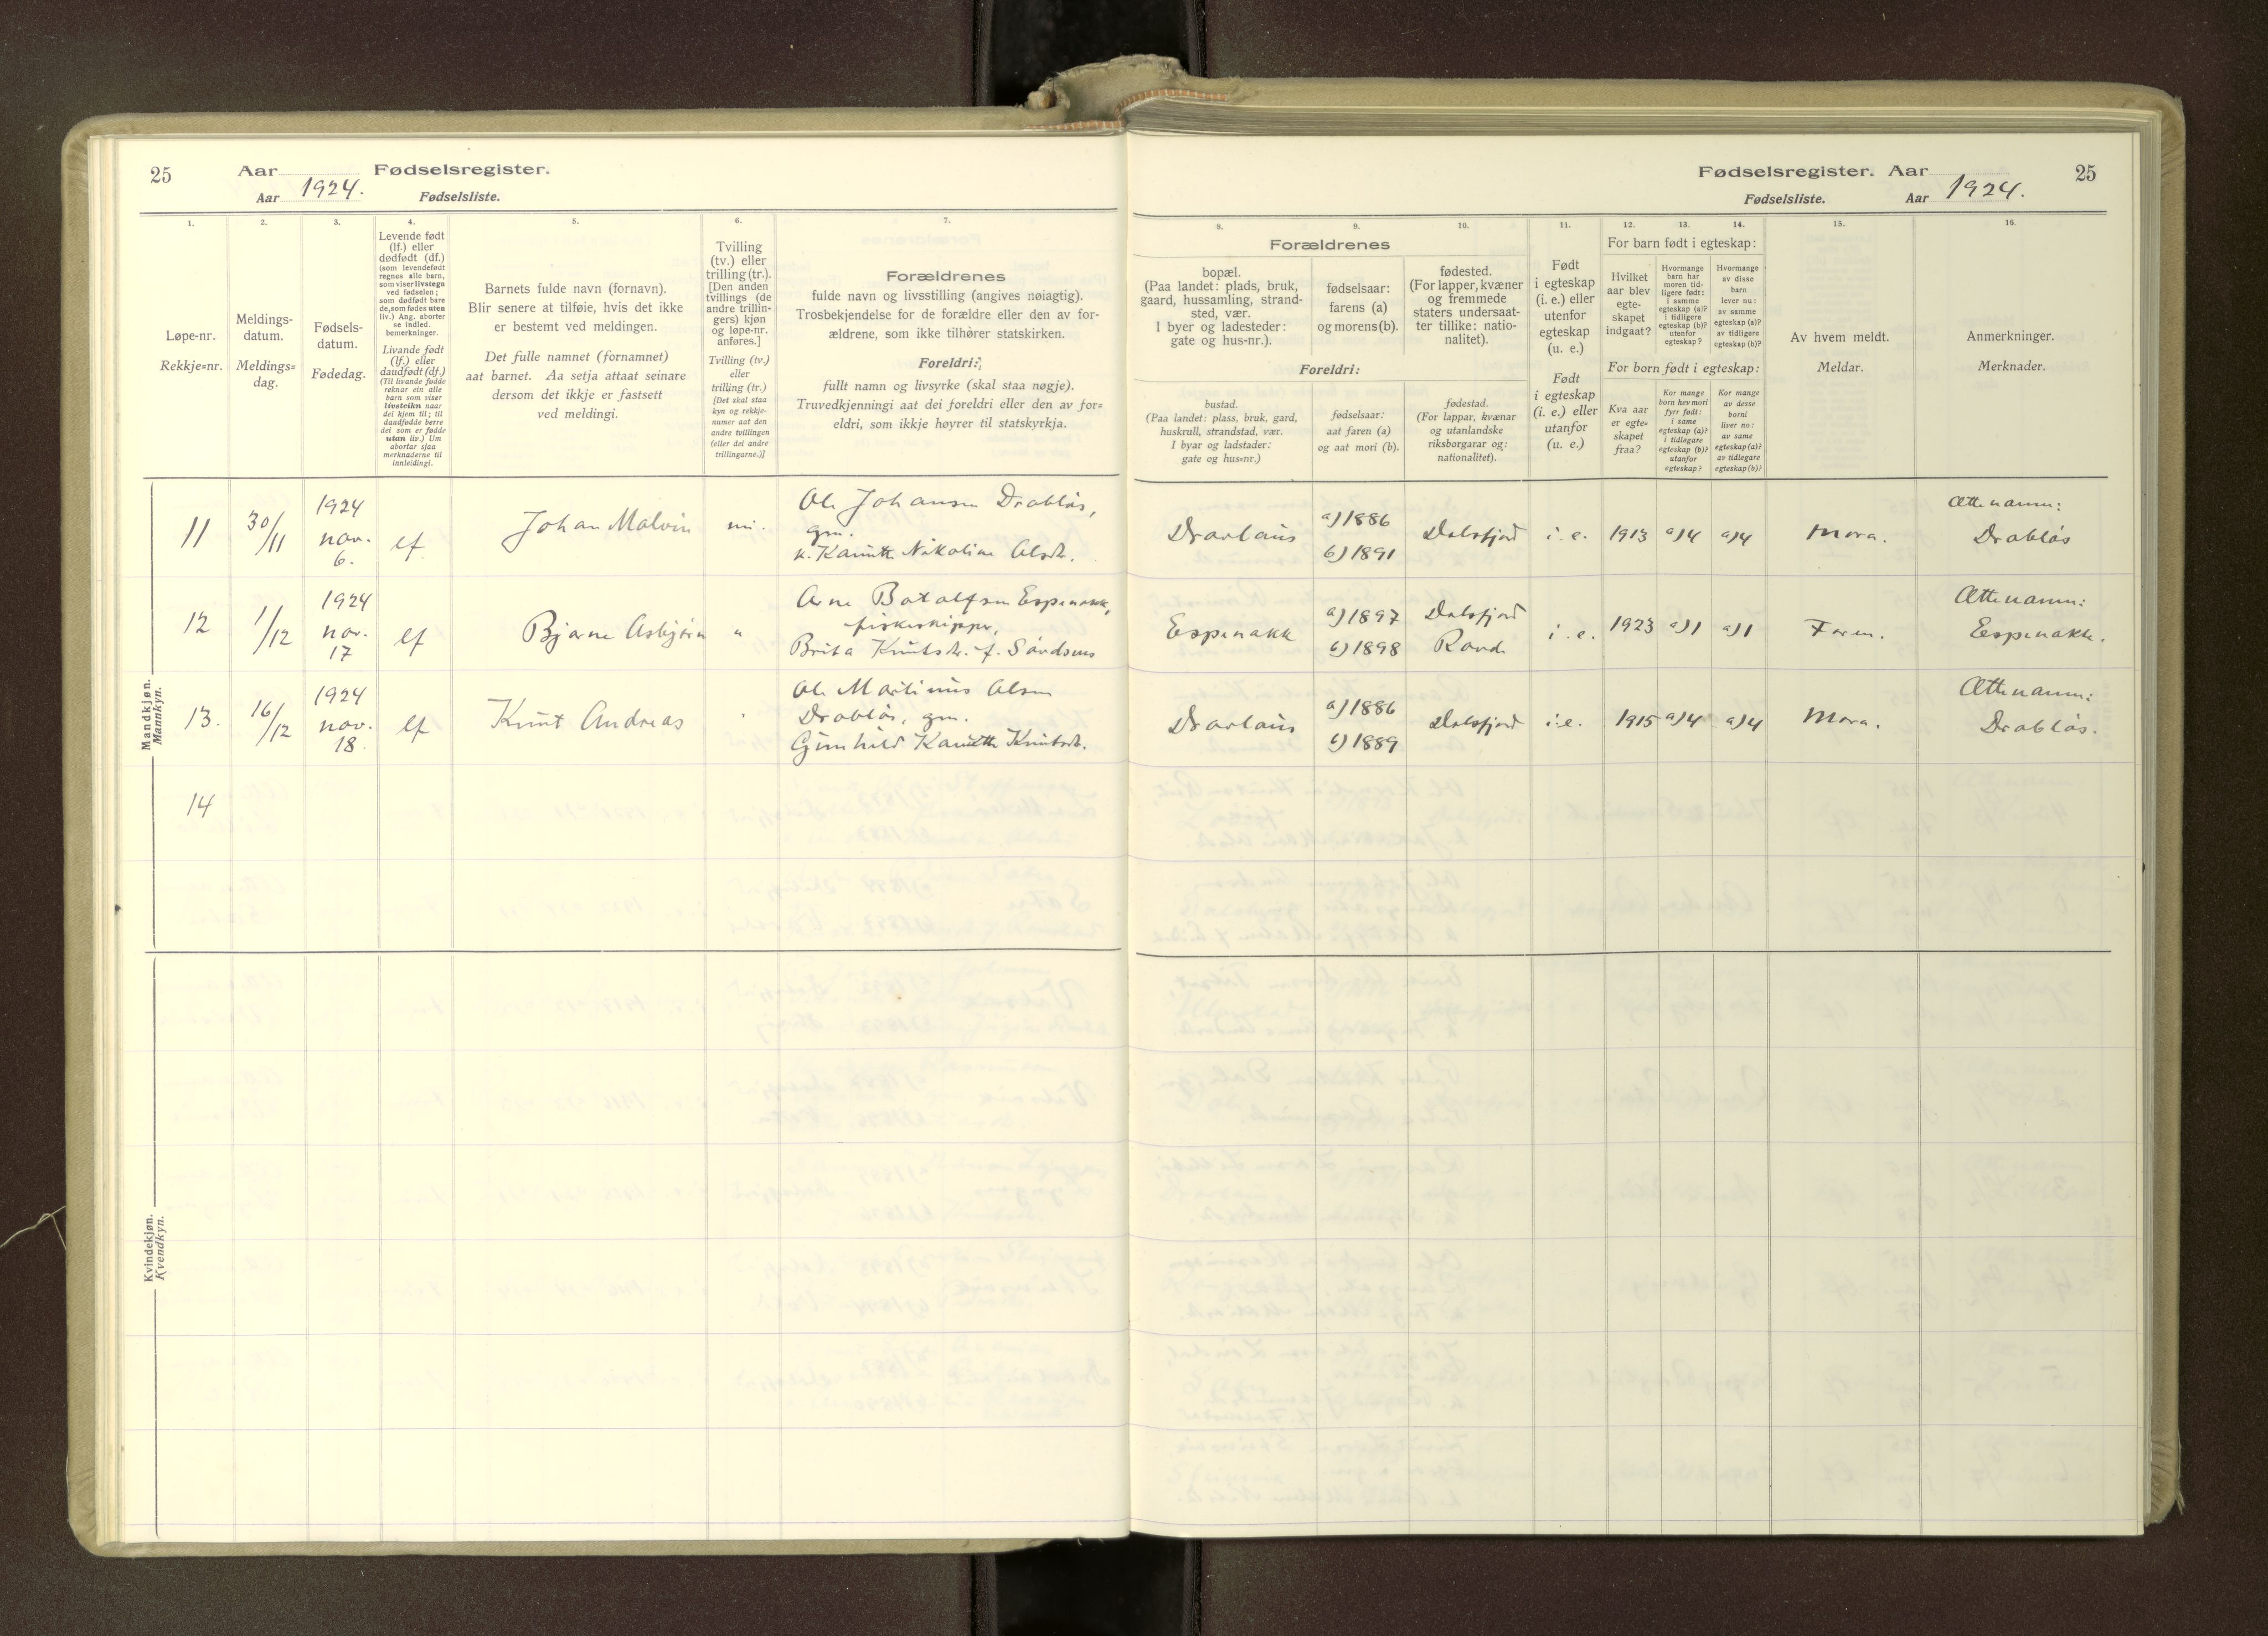 25
Aar
Fødselsregister.
Aar 1924.
Fødselsliste.
1.
2.
3.
4.
5.
6.
7.
Løpe-nr.
Rekkje=nr.
Meldings-
datum.
Meldings=
dag.
Fødsels-
datum.
Fødedag.
Levende født
(lf.) eller
dødfødt (df.)
(som levendefødt
regnes alle barn,
som viser livstegn
ved fødselen;
som dødfødt bare
de, som fødes uten
liv.) Ang. aborter
se indled.
bemerkninger.
Livande født
(lf.) eller
daudfødt (df.)
(Til livande fødde
reknar ein alle
barn som viser
livsteikn naar
dei kjem til; til
daudfødde berre
dei som er fødde
utan liv.) Um
abortar sjaa
merknaderne til
innleidingi.
Barnets fulde navn (fornavn).
Blir senere at tilføie, hvis det ikke
er bestemt ved meldingen.
Det fulle namnet (fornamnet)
aat barnet. Aa setja attaat seinare
dersom det ikkje er fastsett
ved meldingi.
Tvilling
(tv.) eller
trilling (tr.).
[Den anden
tvillings (de
andre trillin-
gers) kjøn
og løpe-nr.
anføres.]
Tvilling (tv.)
eller
trilling (tr.)
[Det skal staa
kyn og rekkje-
numer aat den
andre tvillingen
(eller dei andre
trillingarne.)]
Forældrenes
fulde navn og livsstilling (angives nøiagtig).
Trosbekjendelse for de forældre eller den av for-
ældrene, som ikke tilhører statskirken.
Foreldri:
fullt namn og livsyrke (skal staa nøgje).
Truvedkjenningi aat dei foreldri eller den av for=
eldri, som ikkje høyrer til statskyrkja.
Mandkjøn.
Mannkyn.
11
30/11
1924
nov.
6.
lf
Johan Malvin
Ole Johansen Drabløs,
gm.
k. Kanutte Nikoline Olsdr.
12
1/12
1924
nov.
17
lf
Bjarne Asbjørn
"
Arne Botolfsen Espenakk,
fiskeskipper,
Brita Knutsdr. f. Sandsmo
13.
16/12
1924
nov.
18.
lf
Knut Andreas
Ole Martinus Olsen
Drabløs, gm.
Gunhild Kanutte Knutsdr.
14
Kvindekjøn.
Kvendkyn.
Fødselsregister. Aar
25
Fødselsliste.
Aar 1924.
8.
9.
10.
11.
12.
13.
14.
15.
16.
Forældrenes
bopæl.
(Paa landet: plads, bruk,
gaard, hussamling, strand-
sted, vær.
I byer og ladesteder:
gate og hus-nr.).
fødselsaar:
farens (a)
og morens (b).
fødested.
(For lapper, kvæner
og fremmede
staters undersaat-
ter tillike: natio-
nalitet).
Foreldri:
bustad.
(Paa landet: plass, bruk, gard,
huskrull, strandstad, vær.
I byar og ladstader:
gate og hus=nr.)
fødselsaar:
aat faren (a)
og aat mori (b).
fødestad.
(For lappar, kvænar
og utanlandske
riksborgarar og:
nationalitet).
Født
i egteskap
(i. e.) eller
utenfor
egteskap
(u. e.)
Født
i egteskap
(i. e.) eller
utanfor
(u. e.)
For barn født i egteskap:
Hvilket
aar blev
egte-
skapet
indgaat?
Hvormange
barn har
moren tid-
ligere født:
i samme
egteskap (a)?
i tidligere
egteskap (b)?
utenfor
egteskap?
Hvormange
av disse
barn
lever nu:
av samme
egteskap (a)?
av tidligere
egteskap (b)?
For born født i egteskap:
Kva aar
er egte-
skapet
fraa?
Kor mange
born hev mori
fyrr født:
i same
egteskap (a)?
i tidlegare
egteskap (b)?
utanfor
egteskap?
Kor mange
av desse
borni
liver no:
av same
egteskap (a)?
av tidlegare
egteskap (b)?
Av hvem meldt.
Meldar.
Anmerkninger.
Merknader.
Dravlaus
a) 1886
b) 1891
Dalsfjord
i. e.
1913
a) 4
a) 4
Mora.
Ættenamn:
Drabløs
Espenakk
a) 1897
b) 1898
Dalsfjord
i. e.
1923
a) 1
a) 1
Faren.
Ættenamn:
Espenakk.
Dravlaus
a) 1886
b) 1889
Dalsfjord
i. e.
1915
a) 4
a) 4
Mora.
Ættenamn:
Drabløs.